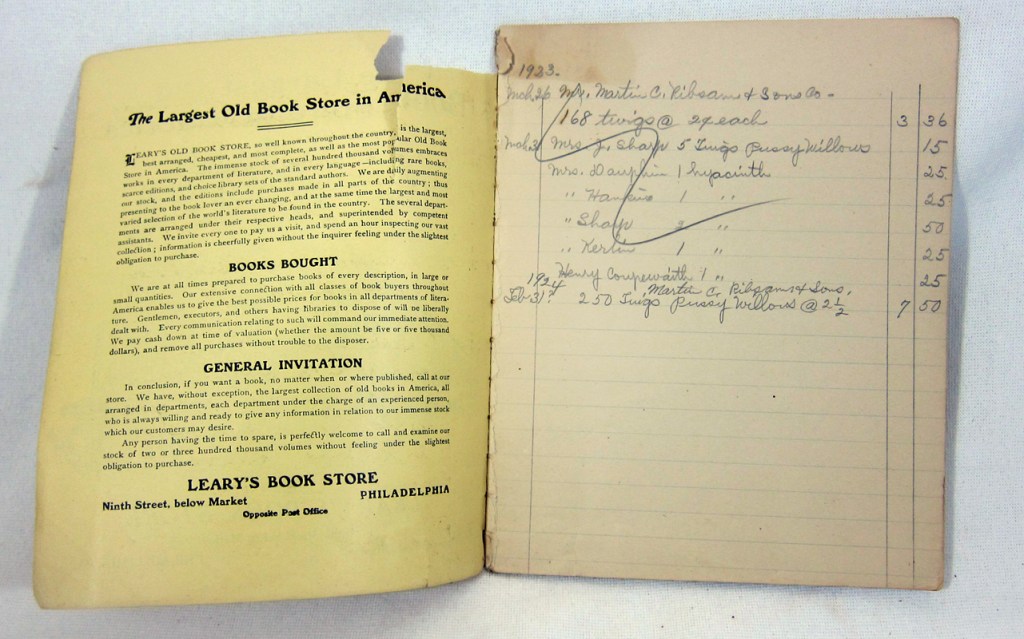 The Largest Old Book Store in America
LEARY'S OLD BOOK STORE, so well known throughout the country, is the largest,
best arranged, cheapest, and most complete, as well as the most popular Old Book
Store in America. The immense stock of several hundred thousand volumes embraces
works in every department of literature, and in every language—including rare books,
scarce editions, and choice library sets of the standard authors. We are daily augmenting
our stock, and the editions include purchases made in all parts of the country; thus
presenting to the book lover an ever changing, and at the same time the largest and most
varied selection of the world's literature to be found in the country. The several depart-
ments are arranged under their respective heads, and superintended by competent
assistants. We invite every one to pay us a visit, and spend an hour inspecting our vast
collection; information is cheerfully given without the inquirer feeling under the slightest
obligation to purchase.
BOOKS BOUGHT
We are at all times prepared to purchase books of every description, in large or
small quantities. Our extensive connection with all classes of book buyers throughout
America enables us to give the best possible prices for books in all departments of litera-
ture. Gentlemen, executors, and others having libraries to dispose of will be liberally
dealt with. Every communication relating to such will command our immediate attention.
We pay cash down at time of valuation (whether the amount be five or five thousand
dollars), and remove all purchases without trouble to the disposer.
GENERAL INVITATION
In conclusion, if you want a book, no matter when or where published, call at our
store. We have, without exception, the largest collection of old books in America, all
arranged in departments, each department under the charge of an experienced person,
who is always willing and ready to give any information in relation to our immense stock
which our customers may desire.
Any person having the time to spare, is perfectly welcome to call and examine our
stock of two or three hundred thousand volumes without feeling under the slightest
obligation to purchase.
LEARY'S BOOK STORE
Ninth Street, below Market PHILADELPHIA
Opposite Post Office
1923.
Mch 26 Mr. Martin C. Ribsam & Sons Co -
168 twigs @ 2¢ each 3 36
Mch 31 Mrs. J. Sharp 5 Twigs Pussy Willows 15
Mrs. Dauphin 1 Hyacinth 25
" Hankins 1 " 25
" Sharp 2 " 50
" Kerlin 1 " 25
Henry 1 " 25
1924 Martin C. Ribsam & Sons,
Feb 31? 250 Twigs Pussy Willows @ 2 1/2 7 50